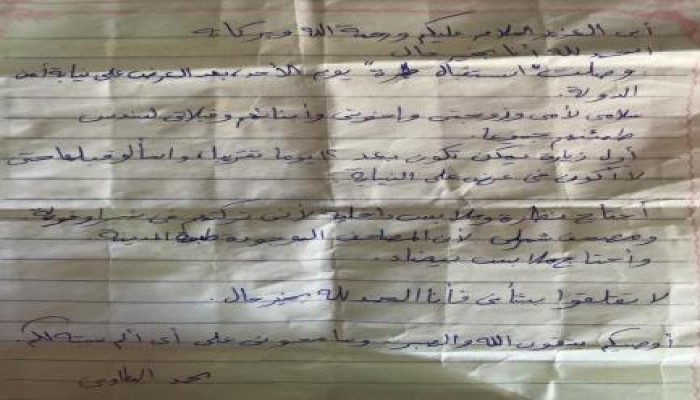 أبى العزيز السلام عليكم ورحمة الله وبركاته
الحمد لله أنا بخير حال
وصلت "استقبال طرة" يوم الأحد، بعد العرض على نيابة أمن
الدولة.
سلامى لأمى وزوجتى وإخوتى وأبنائهم وقبلاتى لسندس
طمئنهم جميعا.
أول زيارة يمكن تكون بعد ١٢ يوما تقريبا، واسألو قبلها حتى
لا أكون فى عرض على النيابة.
أحتاج نظارة وملابس داخلية لأنى تركتهم فى
ومصحف شمرلى لأن المصاحف الموجودة طبعة المدينة
وأحتاج ملابس بيضاء.
لا تقلقوا بشأنى فأنا الحمد لله بخير حال.
أوصيكم بتقوى الله والصبر وسامحونى على أى ألم سببته لكم.
محمد البطاوى